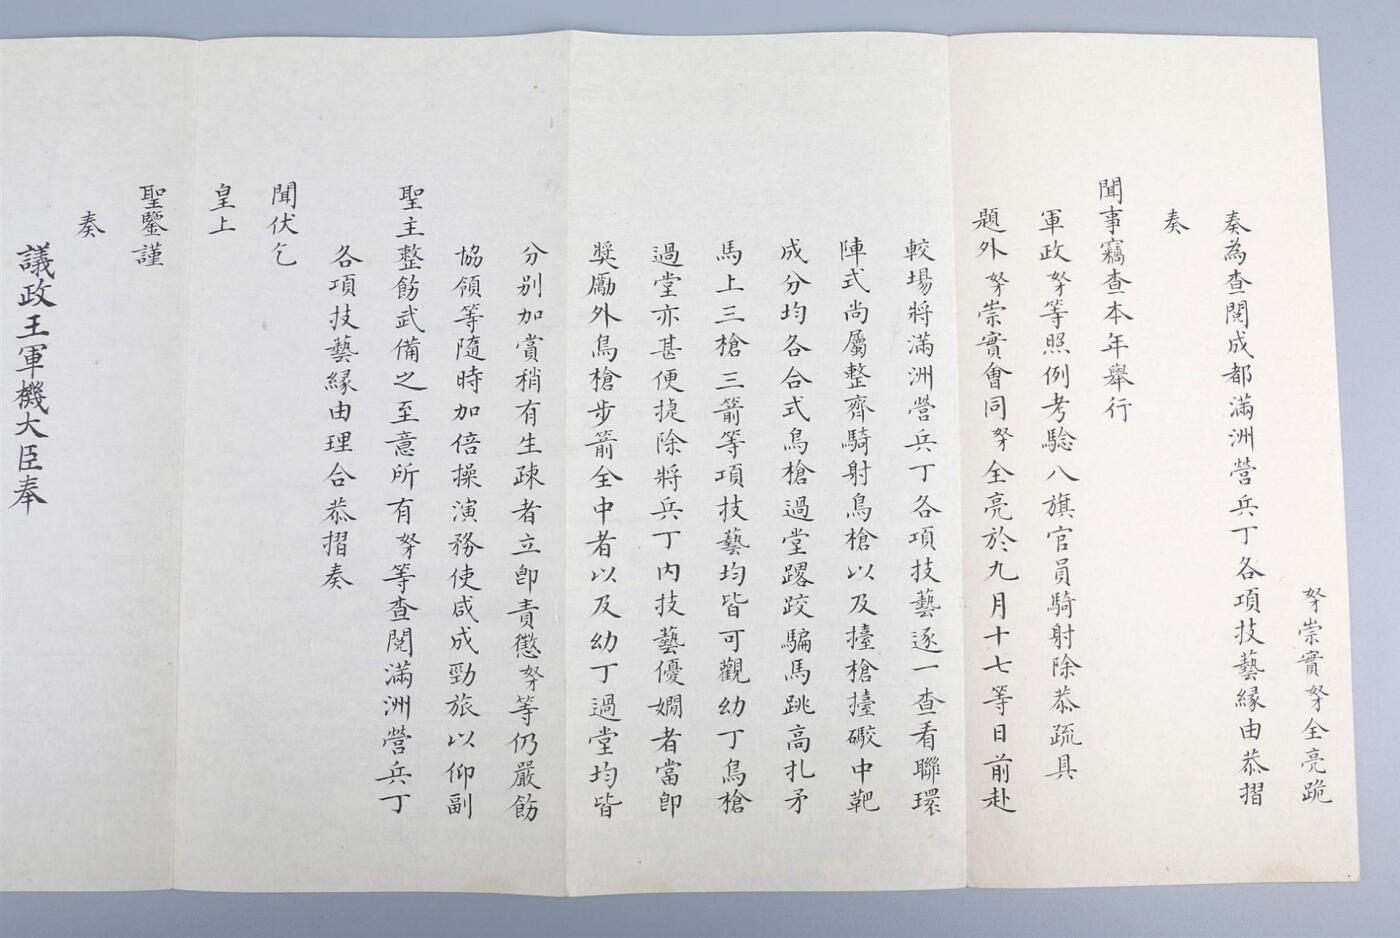 奴崇實奴全亮跪
奏為查閱成都滿洲營兵丁各項技藝緣由恭摺
奏
聞事竊查本年舉行
軍政奴等照例考驗八旗官員騎射除恭疏具
題外奴崇實會同奴全亮於九月十七等日前赴
較場將滿洲營兵丁各項技藝逐一查看聯環
陣式尚屬整齊騎射鳥槍以及擡槍擡礮中靶
成分均各合式鳥槍過堂躧跤騙馬跳高扎矛
馬上三槍三箭等項技藝均皆可觀幼丁鳥槍
過堂亦甚便捷除將兵丁內技藝優嫺者當卽
獎勵外鳥槍步箭全中者以及幼丁過堂均皆
分别加賞稍有生疎者立卽責懲奴等仍嚴飭
協領等隨時加倍操演務使咸成勁旅以仰副
聖主整飭武備之至意所有奴等查閱滿洲營兵丁
各項技藝緣由理合恭摺奏
聞伏乞
皇上
聖鑒謹
奏
議政王軍機大臣奉